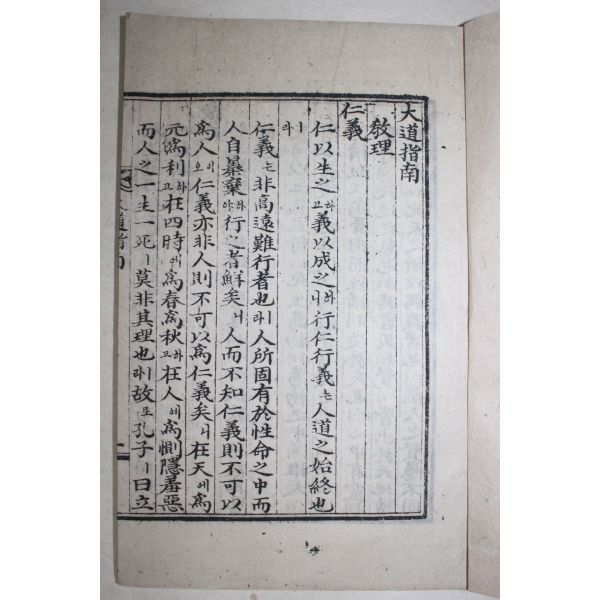 大道指南
敎理
仁義
仁以生之하고義以成之하니行仁行義는人道之始終也
ㅣ라
仁義는非高遠難行者也ㅣ라人所固有於性命之中而
人自暴棄하야行之者鮮矣니人而不知仁義則不可以
爲人이오仁義亦非人則不可以爲仁義矣니在天에爲
元爲利하고在四時에爲春爲秋하고在人에爲惻隱羞惡
而人之一生一死ㅣ莫非其理也ㅣ라故로孔子ㅣ曰立
大道指南